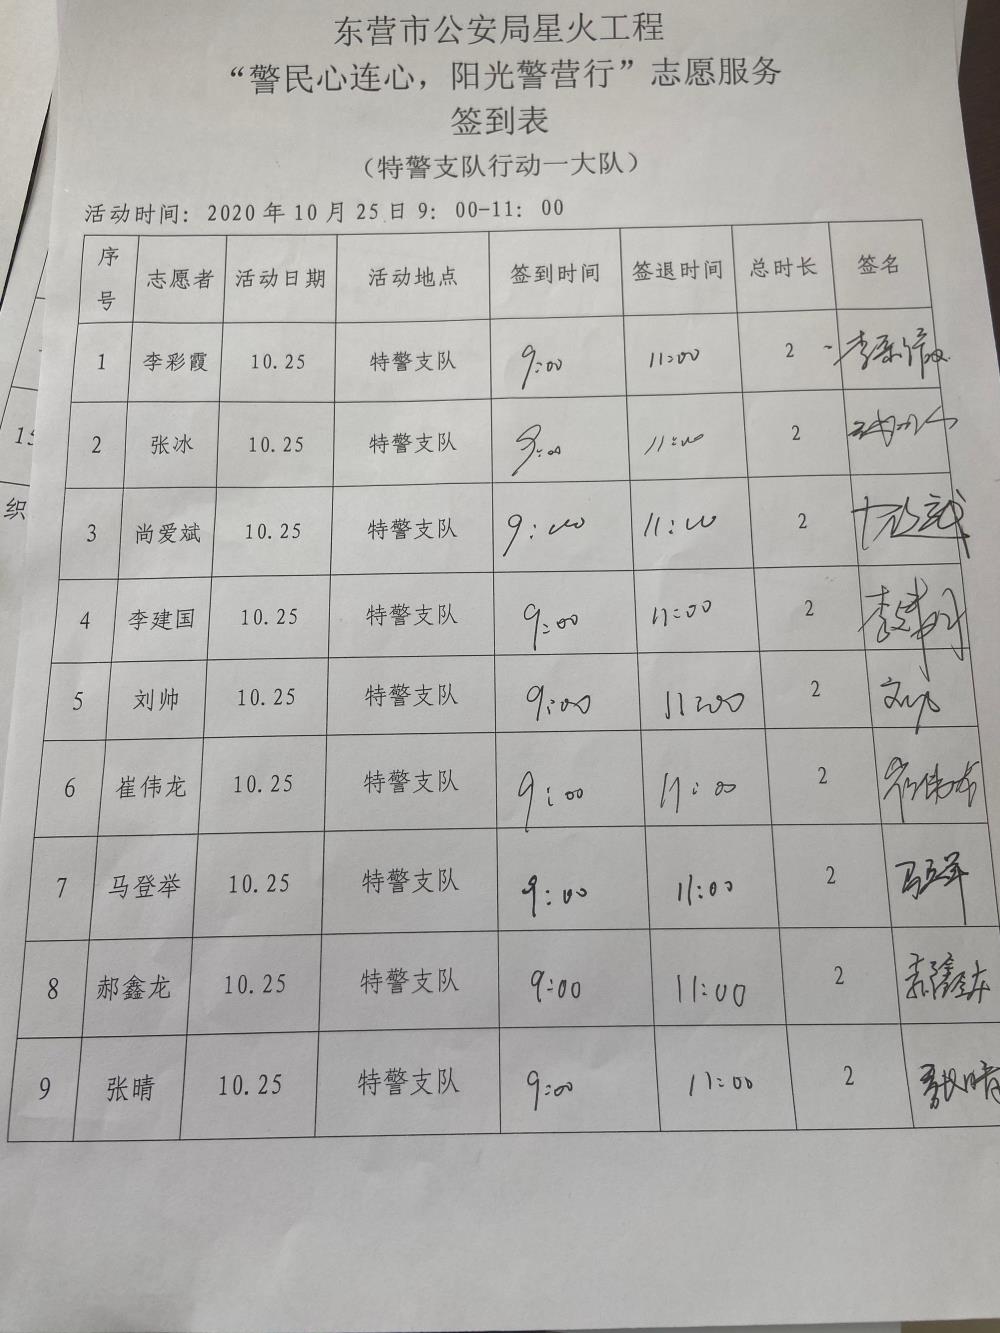 东营市公安局星火工程
“警民心连心，阳光警营行”志愿服务
签到表
（特警支队行动一大队）
活动时间：2020年10月25日9：00-11：00
序号 志愿者 活动日期 活动地点 签到时间 签退时间 总时长 签名
1 李彩霞 10.25 特警支队 9:00 11:00 2 李彩霞
2 张冰 10.25 特警支队 9:00 11:00 2
3 尚爱斌 10.25 特警支队 9:00 11:00 2
4 李建国 10.25 特警支队 9:00 11:00 2 李建国
5 刘帅 10.25 特警支队 9:00 11:00 2 刘帅
6 崔伟龙 10.25 特警支队 9:00 11:00 2 崔伟龙
7 马登举 10.25 特警支队 9:00 11:00 2 马登举
8 郝鑫龙 10.25 特警支队 9:00 11:00 2 郝鑫龙
9 张晴 10.25 特警支队 9:00 11:00 2 张晴
15
织